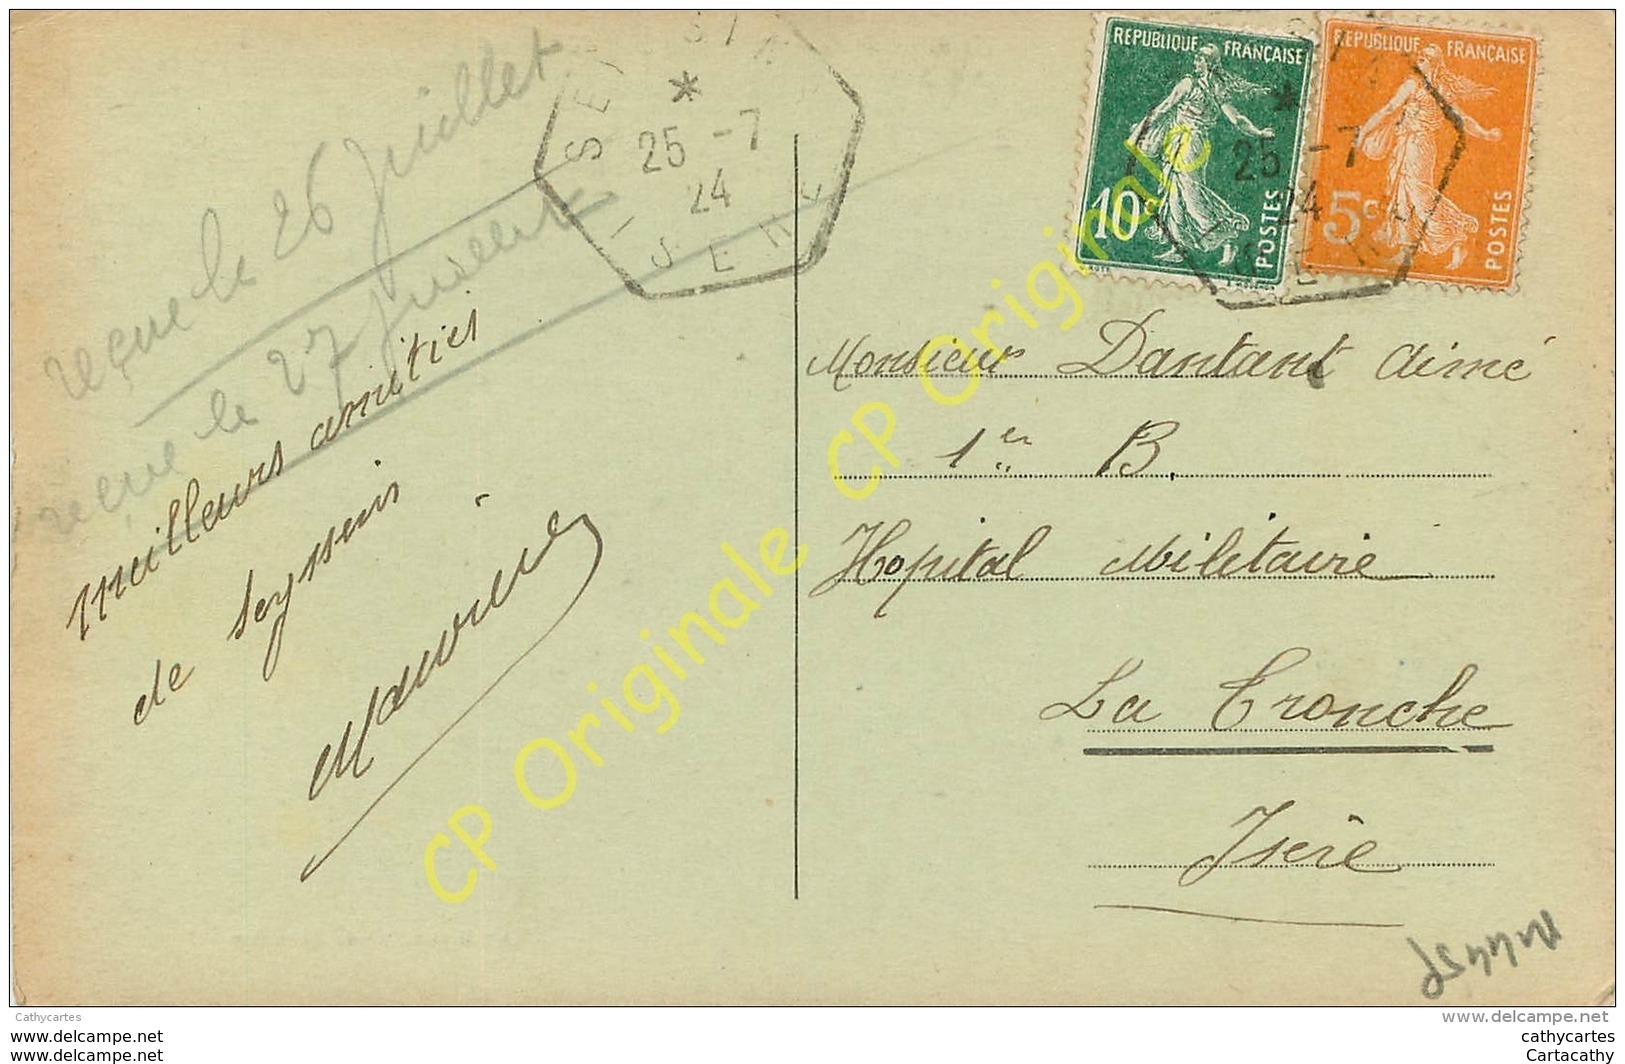 reçue le 26 Juillet
reçue le 27 Juillet
meilleurs amitiés
de Seyssin
Maurice
SEYSSINS
*
25 -7
24
ISERE
REPUBLIQUE FRANÇAISE
10c
POSTES
REPUBLIQUE FRANÇAISE
5c
POSTES
*
25 -7
24
Monsieur Dantant Aimé
1er B.
Hopital Militaire
La Tronche
Isère
CP Originale CP Originale CP Originale
Cathycartes
www.delcampe.net
www.delcampe.net
www.delcampe.net
cathycartes
Cartacathy